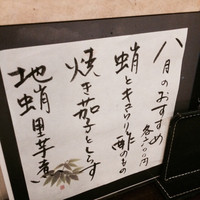 八月のおすすめ
各200円
蛸ときうり酢のもの
焼き茄子としらす
地蛸里芋煮